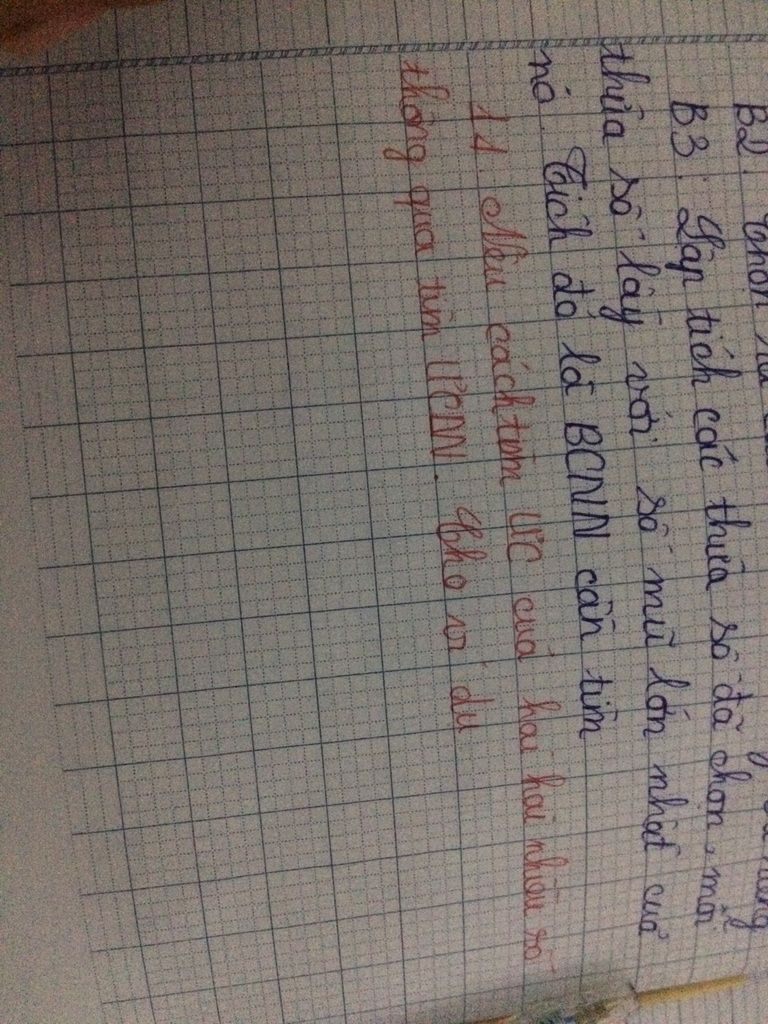 B2. Chọn
B3. Lập tích các thừa số đã chọn, mỗi
thừa số lấy với số mũ lớn nhất của
nó. Tích đó là BCNN cần tìm
11. Nêu cách tìm ƯC của hai hai nhiều số
thông qua tìm ƯCLN. Cho ví dụ